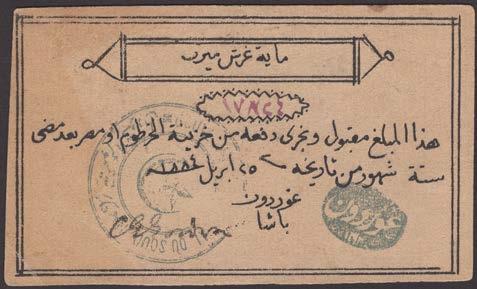 ماية غرش ميرى
١٧٨٢٤
هذا المبلغ مقبول ويجرى دفعه من خزينة الخرطوم او مصر بعد مضى
ستة شهور من تاريخه ٢٥ ابريل ١٨٨٤
غوردون
باشا
غوردون
DU SOUD